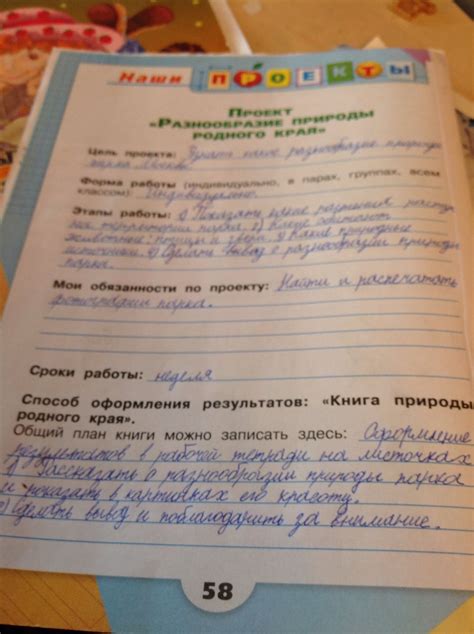 Наши ПРОЕКТЫ
ПРОЕКТ
«РАЗНООБРАЗИЕ ПРИРОДЫ
РОДНОГО КРАЯ»
Цель проекта: Узнать какое разнообразие природы
парка Москвы
Форма работы (индивидуально, в парах, группах, всем
классом): Индивидуально.
Этапы работы: 1) Показать какие растут
на территории парка. 2) Какие обитают
животные: птицы и звери. 3) Какие природные
источники. 4) Сделать вывод о разнообразии природы
парка.
Мои обязанности по проекту: Найти и распечатать
фотографии парка.
Сроки работы: неделя
Способ оформления результатов: «Книга природы
родного края».
Общий план книги можно записать здесь: Оформление
результатов в рабочей тетради на листочках
1) Рассказать о разнообразии природы парка
и показать в картинках его красоту.
2) Сделать вывод и поблагодарить за внимание.
58